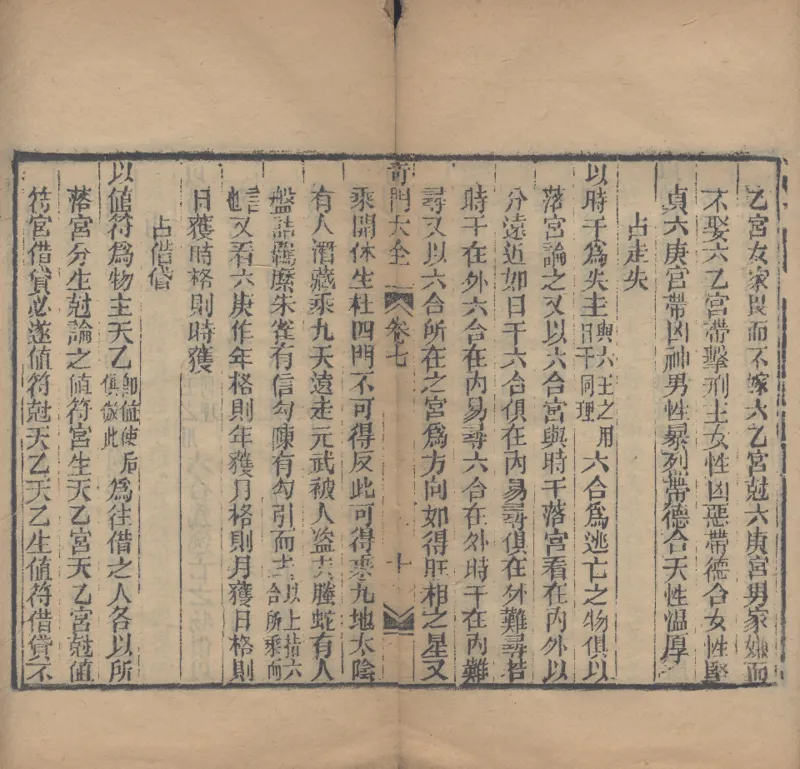 乙宮女家畏而不嫁六乙宮尅六庚宮男家嫌而
不娶六乙宮帶擊刑主女性凶惡帶德合女性堅
貞六庚宮帶凶神男性暴列帶德合天性溫厚
占走失
以時干爲失主與六壬之用日干同理六合爲逃亡之物俱以
落宮論之又以六合宮與時干落宮看在內外以
分遠近如日干六合俱在內易尋俱在外難尋若
時干在外六合在內易尋六合在外時干在內難
尋又以六合所在之宮爲方向如得旺相之星又
奇門大全 卷七 十
乘開休生杜四門不可得反此可得乘九地太陰
有人潛藏乘九天遠走元武被人盗去螣蛇有人
盤詰羈縻朱雀有信勾陳有勾引而去以上指六合所乘而
言也又看六庚作年格則年獲月格則月獲日格則
日獲時格則時獲
占借貸
以値符爲物主天乙卽値使后俱倣此爲往借之人各以所
落宮分生尅論之値符宮生天乙宮天乙宮尅値
符宮借貸必遂値符尅天乙天乙生値符借貸不